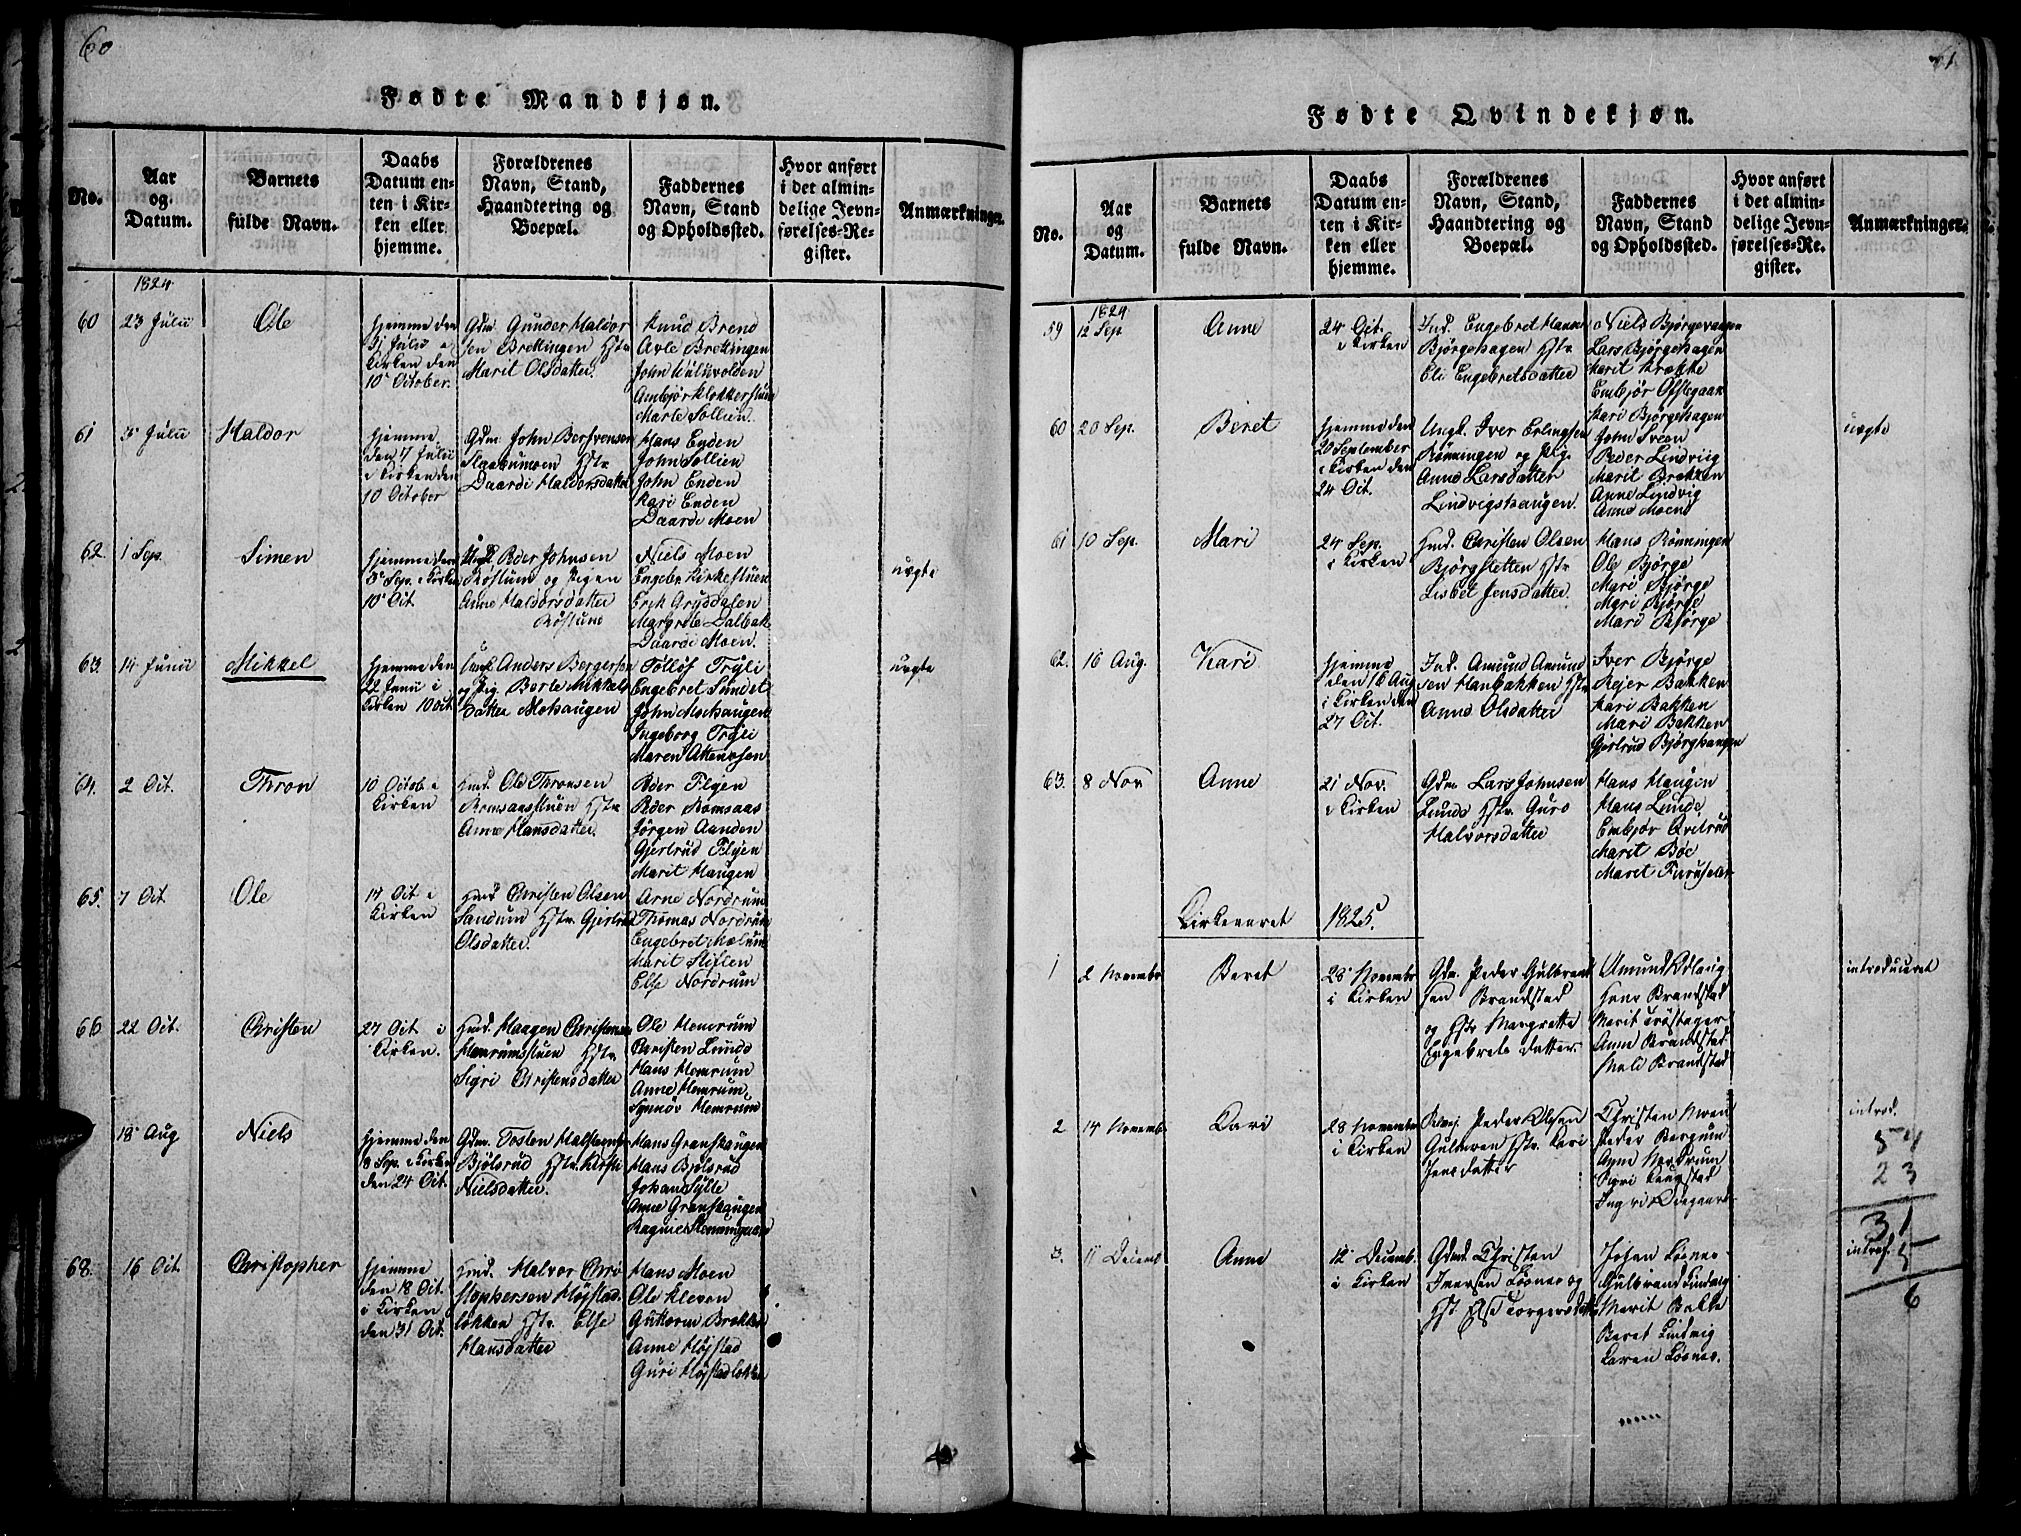 60
Fødte Mandkjøn.
No.
Aar
og
Datum.
Barnets
fulde Navn.
Daabs
Datum en-
ten i Kir-
ken eller
hjemme.
Forældrenes
Navn, Stand,
Haandtering og
Boepæl.
Faddernes
Navn, Stand
og Opholdssted.
Hvor anført
i det almin-
delige Jevn-
førelses-Re-
gister.
Anmærkninger.
1824
60
23 Julii
Ole
hjemme den
31 Julii i
Kirken den
10 October.
Gdm. Gunder Haldor
sen Brettingen Hstr
Marit Olsdatter.
Knud Brend
Avle Brettingen
John
Ambjør Klokkerstuen
Marte Sollien.
61
5 Julii
Haldor
hjemme
den 7 Julii
i Kirken den
10 October
Gdm. John Bersvensen
Hstr
Daardi Haldorsdatter
Hans Enden
John Sollien
John Enden
Kari Enden
Daardi Moen
62.
1 Sep.
Simen
hjemme den
5 Sep. i Kirken
10 Oct
Ungk. Peder Johnsen
Røslum og Pigen
Anne Haldorsdatter
Røslund
Niels Moen
Engebr Kirkestuen
Erik Grysdalen
Margrete Dalbak
Daardi Moen.
uægte
63.
14 Junii
Mikkel
hjemme den
22 Junii i
Kirken 10 Oct
Ungk. Anders Bergersen
og Pig. Berte Mikkels
datter Mohaugen
Tollof Tryli
Engebret Sundet
John Mochaugen
Ingeborg Tryli
Maren
uægte
64.
2 Oct.
Thron
10 Octob i
Kirken
Hmd. Ole Thronsen
Romsaasstuen Hstr
Anne Hansdatter.
Peder Flyen
Peder Romsaas
Jörgen Aanden
Gjertrud Flyen
Marit Haugen
65.
7 Oct.
Ole
17 Oct i
Kirken
Hmd Christen Olsen
Sandum Hstr. Gjertrud
Olsdatter.
Arne Nordrum
Thomas Nordrum
Engebret Mælum
Marit Stiflen
Else Nordrum
66
22 Oct.
Christen
27 Oct i
Kirken.
Hmd. Haagen Christensen
Hemrumsstuen Hstr
Sigri Christensdatter
Ole Hemrum
Christen Lunde
Hans Hemrum
Anne Hemrum,
Synnöv Hemrum
18 Aug
Niels
hjemme den
8 Sep. i Kirken
den 24 Oct.
Gdm. Tosten Halstensen
Bjølsrud Hstr. Kirsti
Nielsdatter.
Hans Granshaugen
Hans Bjølsrud
Johan Sylte
Anne Granshaugen
68.
16 Oct.
Christopher
hjemme
den 18 Oct.
i Kirken
den 31 Oct.
Hmd. Halvor Chri
stophersen Høystad
løkken Hstr. Else
Hansdatter
Hans Moen
Ole Kleven
Guttorm Brekken
Anne Høystad
Guri Høystadløkken
61
Fødte Qvindekjøn.
No.
Aar
og
Datum.
Barnets
fulde Navn.
Daabs
Datum en-
ten i Kir-
ken eller
hjemme.
Forældrenes
Navn, Stand,
Haandtering og
Boepæl.
Faddernes
Navn, Stand
og Opholdssted.
Hvor anført
i det almin-
delige Jevn-
førelses-Re-
gister.
Anmærkninger.
1824
59
12 Sep
Anne
24 Oct.
i Kirken
Ind. Engebret Hansen
Bjørgehagen Hstr
Eli Engebretsdatter
Niels Bjørgevangen
Lars Bjørgehagen
Marit Krække
Embjør Offegaar
Kari Bjørgehagen
60
20 Sep.
Beret
hjemme den
20 September
i Kirken den
24 Oct.
Ungk. Iver Erlingsen
Rønningen og Pig.
Anne Larsdatter
Lindvigshaugen.
John Sveen
Peder Lindviig
Marit Brekken
Anne Lindvig
Anne Moene
uægte
61
10 Sep.
Mari
24 Sep.
i Kirken
Hmd. Christen Olsen
Bjørgsletten Hstr
Lisbet Jensdatter.
Hans Rønningen
Ole Bjørge
Mari Bjørge
Mari Bjørge
Mari Bjørge
62.
16 Aug.
Kari
hjemme
den 16 Aug
i Kirken den
27 Oct.
Ind. Amund Amund
sen Haubakken Hstr
Anne Olsdatter
Iver Bjørge
Rejer Bakken
Kari Bakken
Mari Bakken
Gjertrud Bjørghaugen
63.
8 Nov
Anne
21 Nov.
i Kirken
Gdm Lars Johnsen
Lunde Hstr. Guro
Halvorsdatter
Hans Haugen
Hans Lunde
Embjør Qvilrud
Marit Böe
Marit
Kirkeaaret 1825.
1
2 Novembr
Beret
28 Novembr
i Kirken
Gdm. Peder Gulbrand
sen Brandstad
og Hstr Margrette
Engebrets datter.
Amund
Brandstad
Marit
Anne Brandstad
Brandstad
introduceret
2
14 Novemb.
Kari
28 Novembr
i Kirken
Peder Olsen
Hstr. Kari
Jensdatter
Christen Moen
Peder Bergum
Anne Nordrum
Sigri
Ingri Ødegaard
introd.
54
23
31
3.
11 Decemb
Anne
12 Decemb.
i Kirken
Gdmd Christen
Iversen Løsnes og
Hst Else Torgersdatter
Johan Løsnes
Gulbrand Lindvig
Marit Bakke
Beret Lindvig
Karen Løsnes.
introd.
6